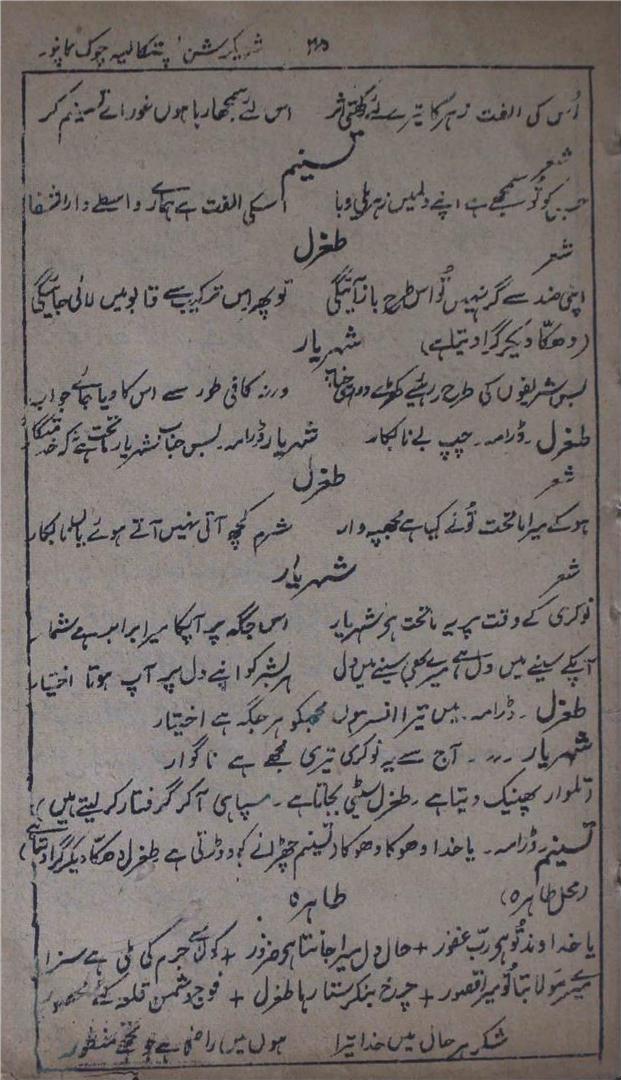 شریکرشن پتکالیہ چوک کانپور۔ ۳۵
اُس کی الفت زہر کا تیرے لئے رکھتی اثر اس لئے سمجھا رہا ہوں غور اے تسنیم کر
شعر تسنیم
جس کو تُو سمجھے ہے اپنے دلمیں زہریلی وبا اسکی الفت ہے ہمارے واسطے دارالشفا
شعر طغرل
اپنی ضد سے گر نہیں تُو اس طرح باز آئیگی تو پھر اس ترکیب سے قابو میں لائی جائیگی
(دھکّا دیکر گرا دیتا ہے) شہریار
بس شریفوں کی طرح رہئیے کھڑے ورنہ کافی طور سے اس کا دیا جائے جواب
طغرل۔ ڈرامہ۔ چپ بے نابکار شہریار ڈرامہ۔ بس جناب شہریار
شعر طغرل
ہو کے میرا ماتحت تُونے کیا ہے مجھپہ وار شرم کچھ آتی نہیں آتے ہوئے نابکار
شعر شہریار
نوکری کے وقت پر یہ ماتحت ہے شہریار اس جگہ پر آپکا میرا برابر ہے شمار
آپکے سینے میں دل ہے میرے بھی سینے میں دل ہر بشر کو اپنے دل پر آپ ہوتا اختیار
طغرل۔ ڈرامہ۔ میں تیرا افسر ہوں مجھکو ہر جگہ ہے اختیار
شہریار ۔ ۔ آج سے یہ نوکری تیری مجھے ہے ناگوار
(تلوار پھینک دیتا ہے۔ طغرل سیٹی بجاتا ہے۔ سپاہی آکر گرفتار کر لیتے ہیں)
تسنیم ڈرامہ۔ یا خدا دھوکا دھوکا (تسنیم چھڑانے کو دوڑتی ہے طغرل دھکّا دیکر گرا دیتا ہے)
(محل طاہرہ) طاہرہ
یا خداوند تُو ہے ربّ غفور + حال دل میرا جانتا ہے ضرور + کون سے جرم کی ملی ہے سزا
میرے مولا بتا تُو میرا قصور + چرخ بنکر ستا رہا طغرل + فوج دشمن قلعہ کئے محصور
شکر ہر حال میں خدا تیرا ہوں میں راضی جو تجھے منظور